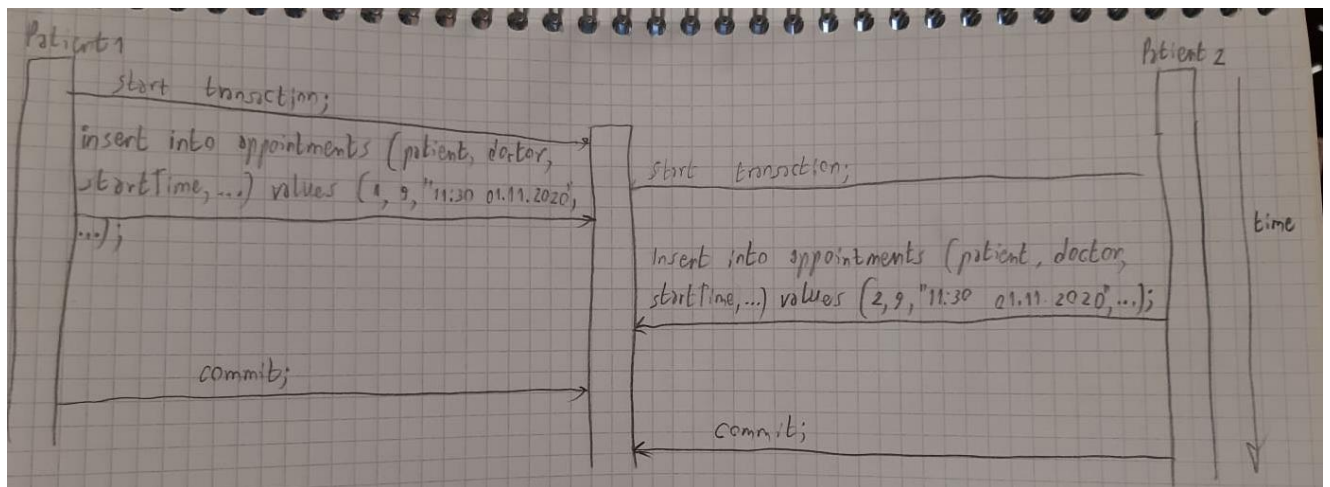 Patient 1
start transaction;
insert into appointments (patient, doctor,
startTime,...) values (1, 9, "11:30 01.11.2020",
...);
commit;
Patient 2
start transaction;
Insert into appointments (patient, doctor,
startTime,...) values (2, 9, "11:30 01.11.2020",...);
commit;
time